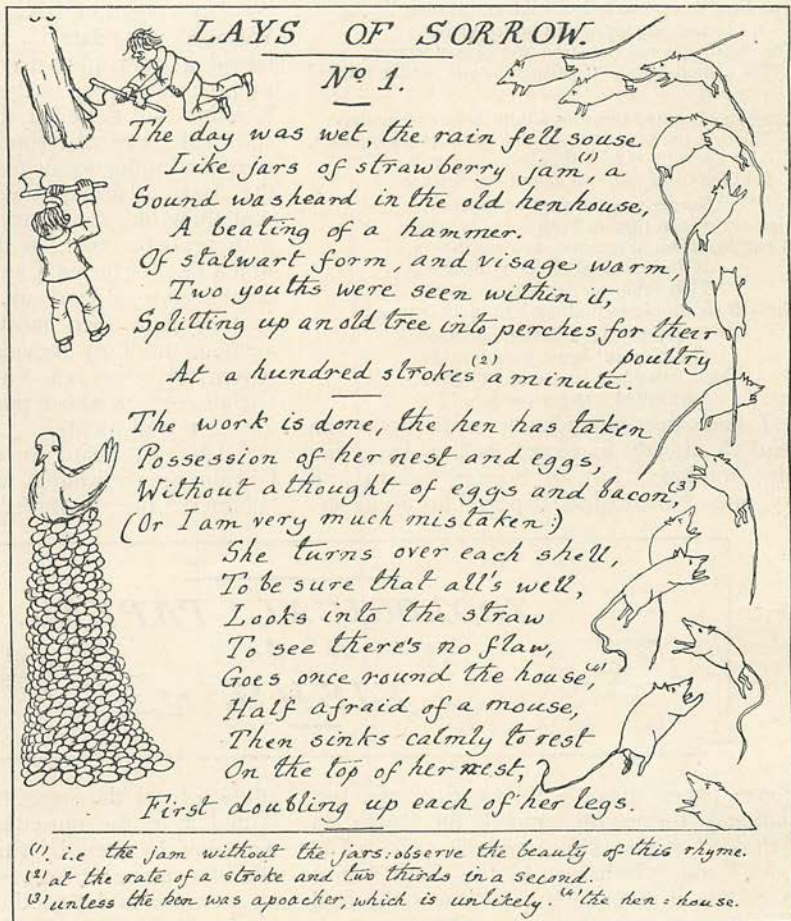 LAYS OF SORROW.
No 1.
The day was wet, the rain fell souse
Like jars of strawberry jam,(1) a
Sound was heard in the old henhouse,
A beating of a hammer.
Of stalwart form, and visage warm,
Two youths were seen within it,
Splitting up an old tree into perches for their
poultry
At a hundred strokes(2) a minute.
The work is done, the hen has taken
Possession of her nest and eggs,
Without a thought of eggs and bacon,(3)
(Or I am very much mistaken:)
She turns over each shell,
To be sure that all's well,
Looks into the straw
To see there's no flaw,
Goes once round the house,(4)
Half afraid of a mouse,
Then sinks calmly to rest
On the top of her nest,
First doubling up each of her legs.
(1). i.e the jam without the jars: observe the beauty of this rhyme.
(2) at the rate of a stroke and two thirds in a second.
(3) unless the hen was a poacher, which is unlikely. (4) the hen = house.